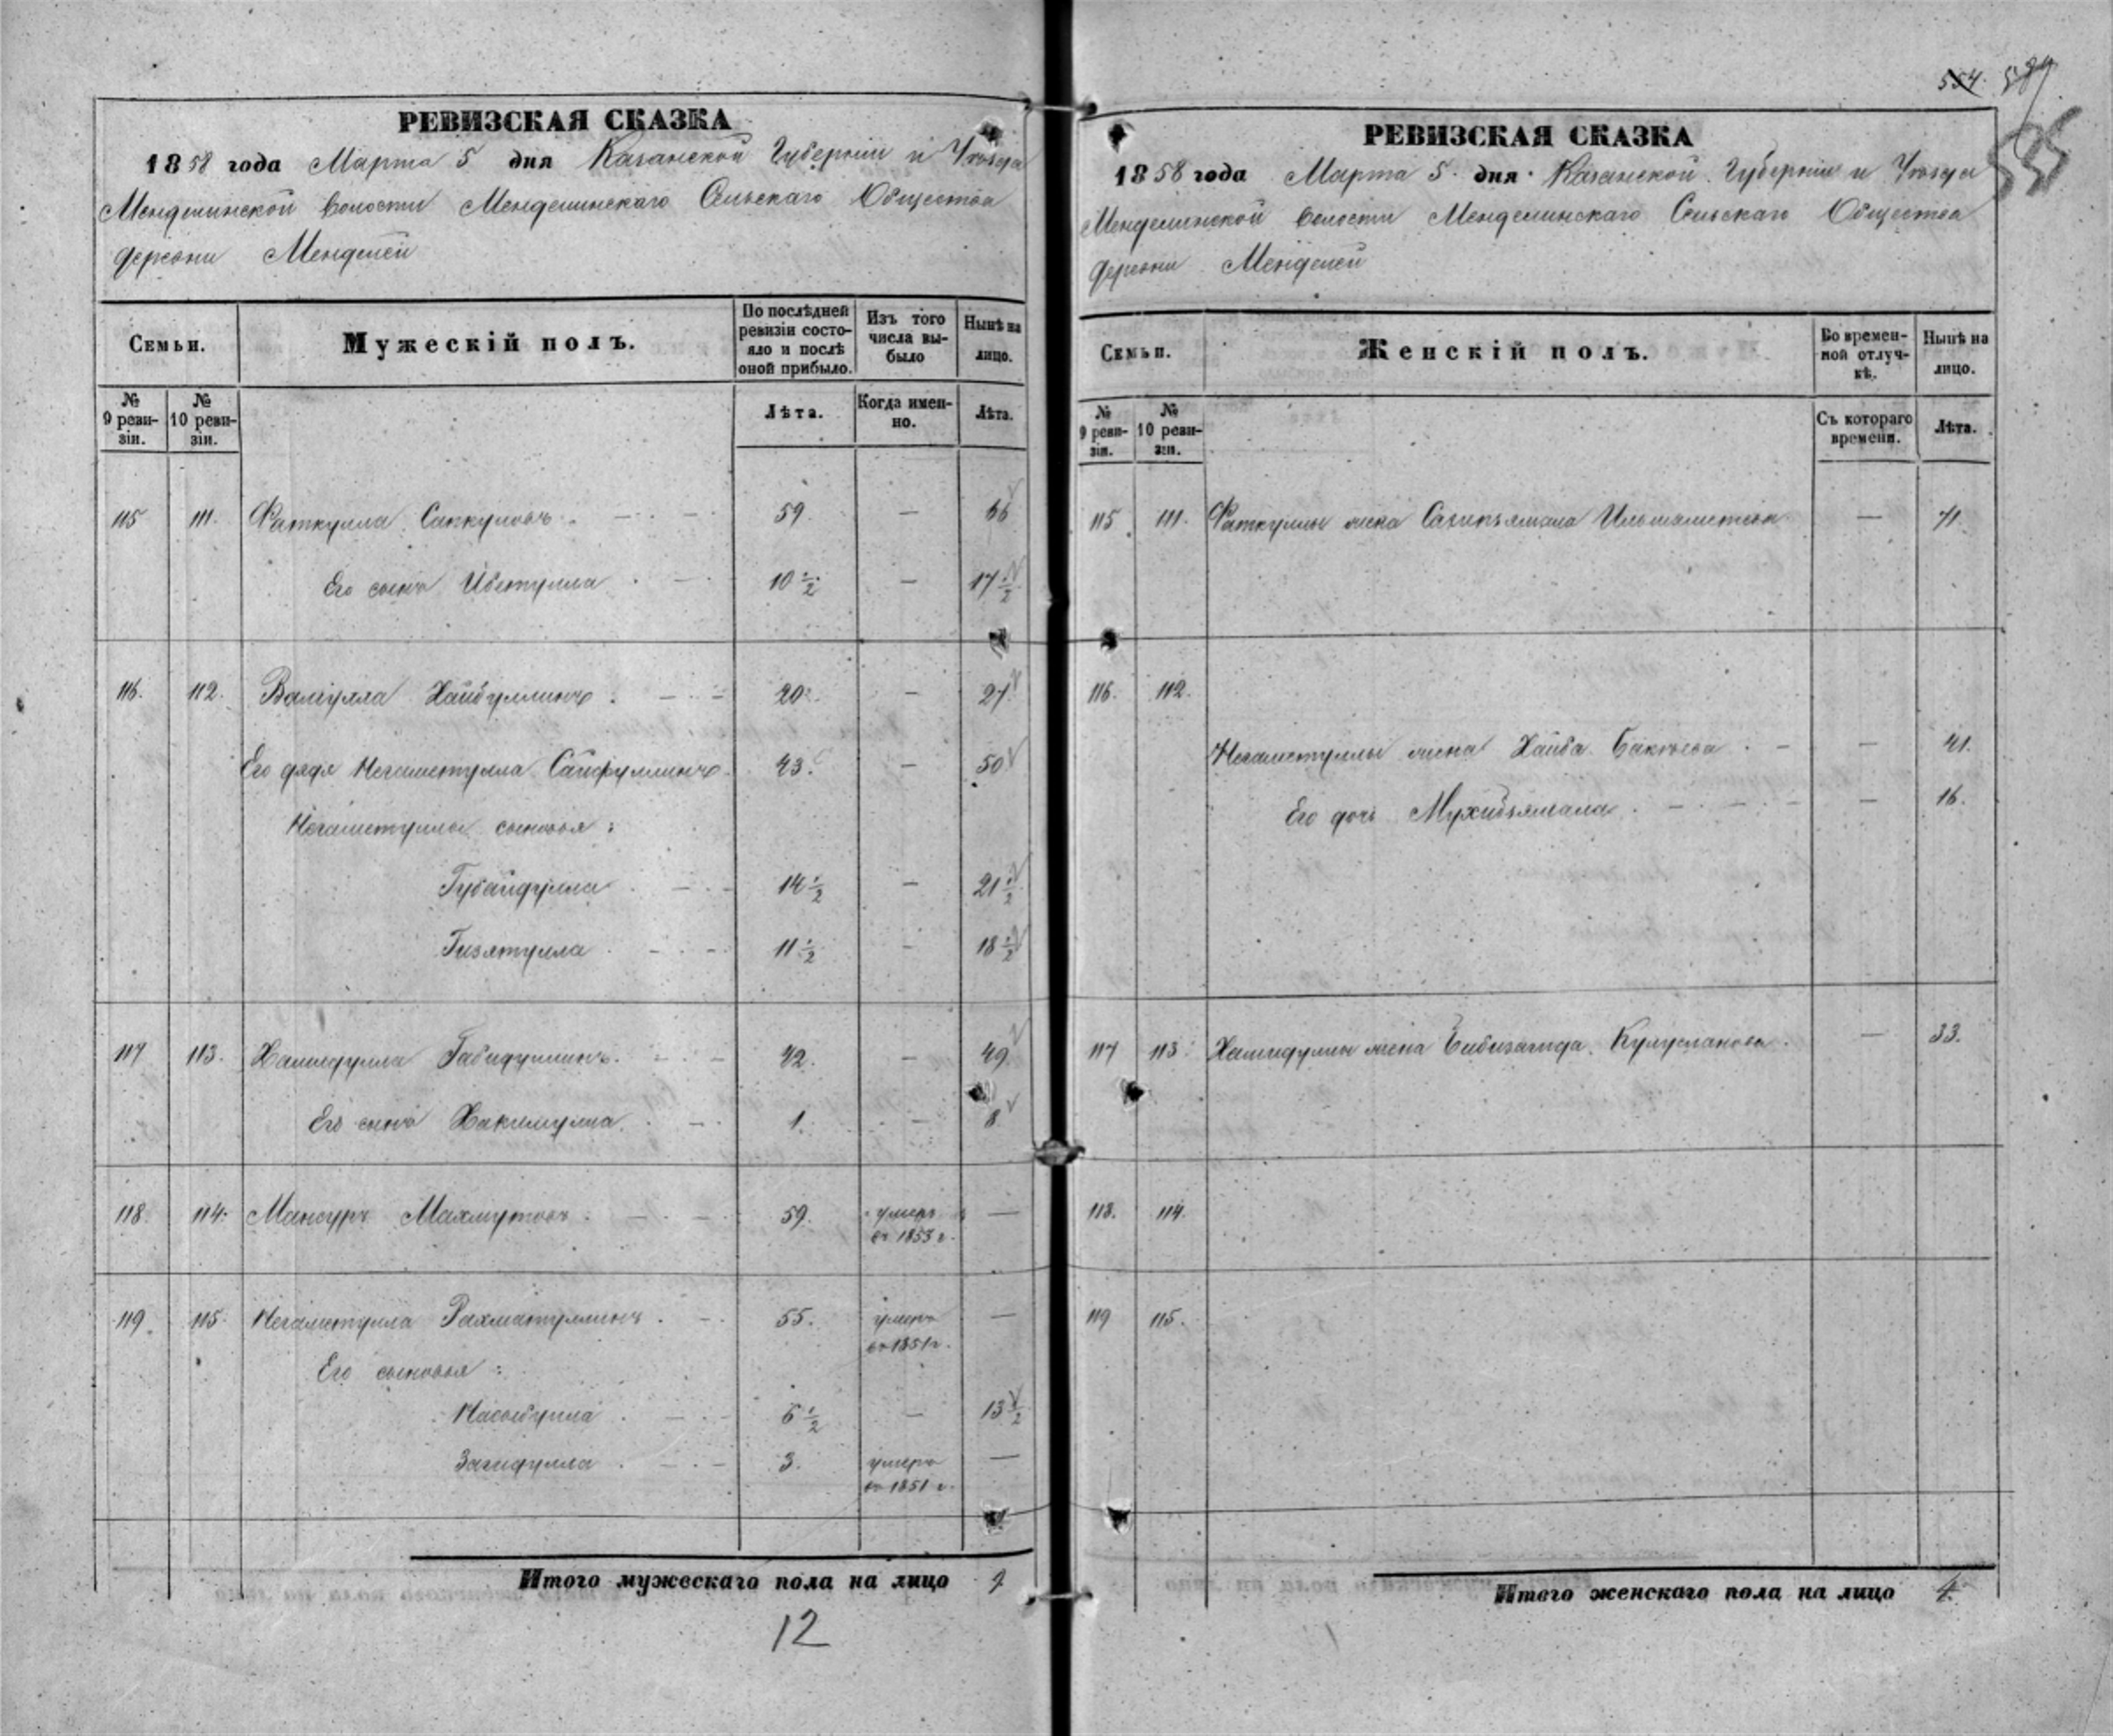 РЕВИЗСКАЯ СКАЗКА
1858 года Марта 5 дня Казанской Губернии и Уѣзда
Менделинской Волости Менделинскаго Сельскаго Общества
деревни Менделей
Семьи.
Мужескій полъ.
По послѣдней ревизіи состояло и послѣ оной прибыло.
Изъ того числа выбыло
Нынѣ на лицо.
№ 9 ревизіи.
№ 10 ревизіи.
Лѣта.
Когда именно.
Лѣта.
115 111. Фаткулла Сапкуловъ 59 — 66
Его сынъ Ибетулла 10 1/2 — 17 1/2
116. 112. Валиулла Хайбуллинъ 20 — 27
Его дядя Негаметулла Сайфуллинъ 43. — 50
Негаметуллы сыновья:
Губайдулла 14 1/2 — 21 1/2
Гизятулла 11 1/2 — 18 1/2
117 113. Хамидулла Габидуллинъ 42. — 49
Его сынъ Хакимулла 1. — 8
118. 114. Мансуръ Махмутовъ 59. умеръ —
въ 1853 г.
119. 115. Негаметулла Рахматуллинъ 55. умеръ —
въ 1851 г.
Его сыновья:
Насыбулла 6 1/2 — 13 1/2
Загидулла 3. умеръ —
въ 1851 г.
Итого мужескаго пола на лицо 9
12
554.
РЕВИЗСКАЯ СКАЗКА
1858 года Марта 5 дня Казанской Губерніи и Уѣзда
Менделинской Волости Менделинскаго Сельскаго Общества
деревни Менделей
Семьи.
Женскій полъ.
Во временной отлучкѣ.
Нынѣ на лицо.
№ 9 ревизіи.
№ 10 ревизіи.
Съ котораго времени.
Лѣта.
115 111. Фаткуллы жена —
116. 112.
Негаметуллы жена Хайба — 41.
Его дочь — 16.
117 113. Хамидуллы жена — 33.
118. 114.
119 115.
Итого женскаго пола на лицо 4.